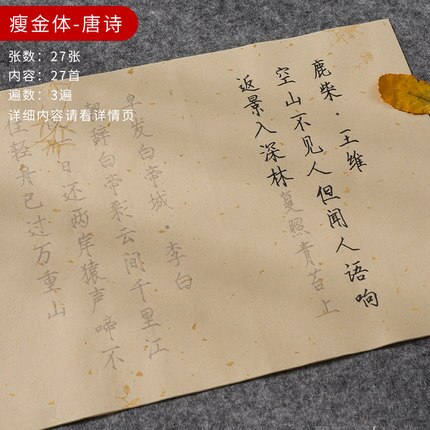 瘦金体-唐诗
张数：27张
内容：27首
遍数：3遍
详细内容请看详情页
鹿柴·王维
空山不见人但闻人语响
返景入深林复照青苔上
早发白帝城·李白
朝辞白帝彩云间千里江
日还两岸猿声啼不
住轻舟已过万重山